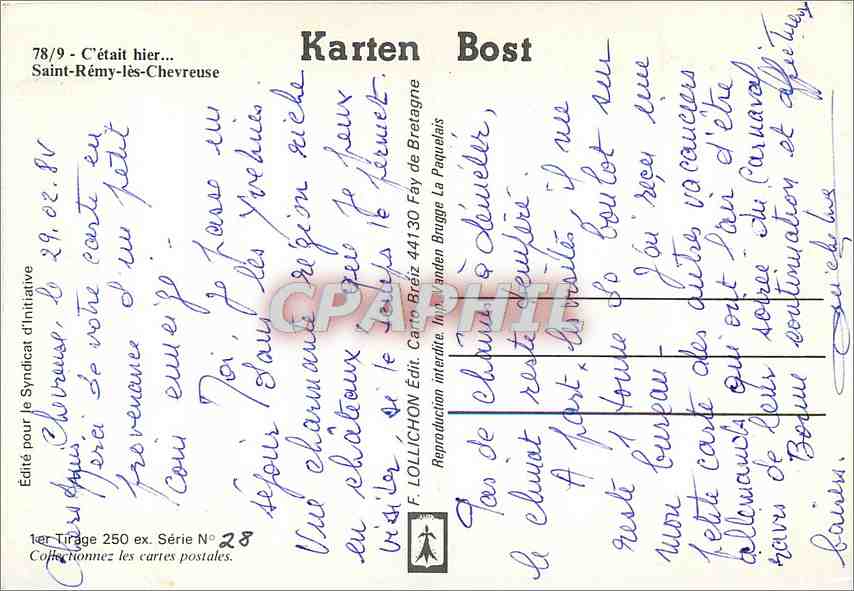 78/9 - C'était hier...
Saint-Rémy-lès-Chevreuse
Karten Bost
Édité pour le Syndicat d'Initiative
Chevreuse, le 29.02.84
Chers amis,
Merci de votre carte en
provenance d'un petit
coin enneigé.
Moi, je passe un
séjour dans les Yvelines.
Une charmante région riche
en châteaux que je peux
visiter, si le temps le permet.
F. LOLLICHON Édit. Carto Breiz 44130 Fay de Bretagne
Reproduction interdite. Imp. Vanden Brugge La Paquelais
Pas de chaînes à démêler,
le climat reste tempéré.
A part les visites il me
reste 1 tonne de boulot sur
mon bureau. J'ai reçu une
petite carte des autres vacanciers
allemands qui ont l'air d'être
ravis de leur soirée du Carnaval
Bonne continuation et affectueux
baisers.
1er Tirage 250 ex. Série N° 28
Collectionnez les cartes postales.
CPAPHIL